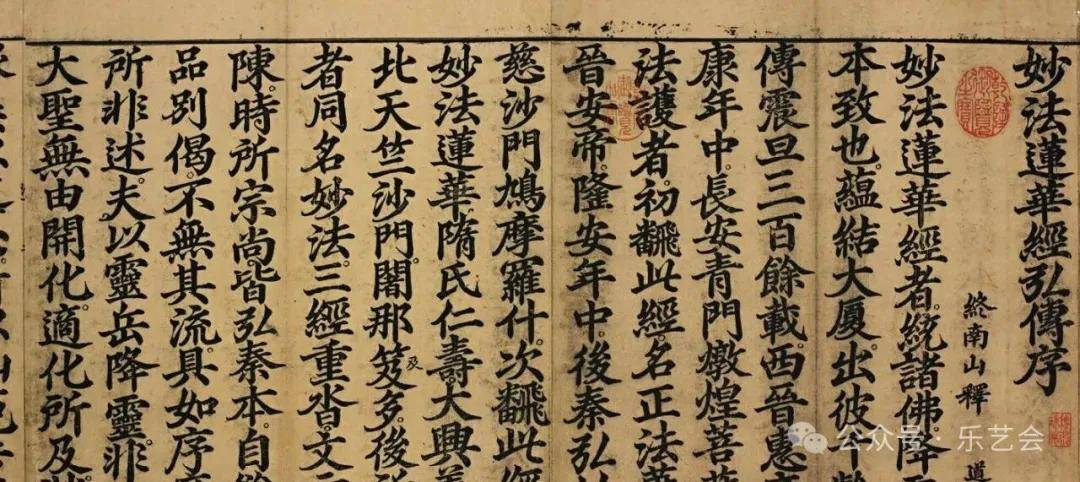 妙法蓮華經弘傳序
終南山釋 道
妙法蓮華經者。統諸佛降
本致也。蘊結大厦。出彼千齡
傳震旦三百餘載。西晉惠
康年中。長安青門燉煌菩
法護者。初飜此經。名正法
晉安帝。隆安年中。後秦弘
慈沙門鳩摩羅什。次飜此
妙法蓮華隋氏仁壽。大興
北天竺沙門闍那笈及多。後
者同名妙法。三經重沓。文
陳。時所宗尚皆弘秦本。自餘
品別偈。不無其流。具如序
所非述。夫以靈岳降靈。非
大聖無由開化。適化所及
公众号·乐艺会